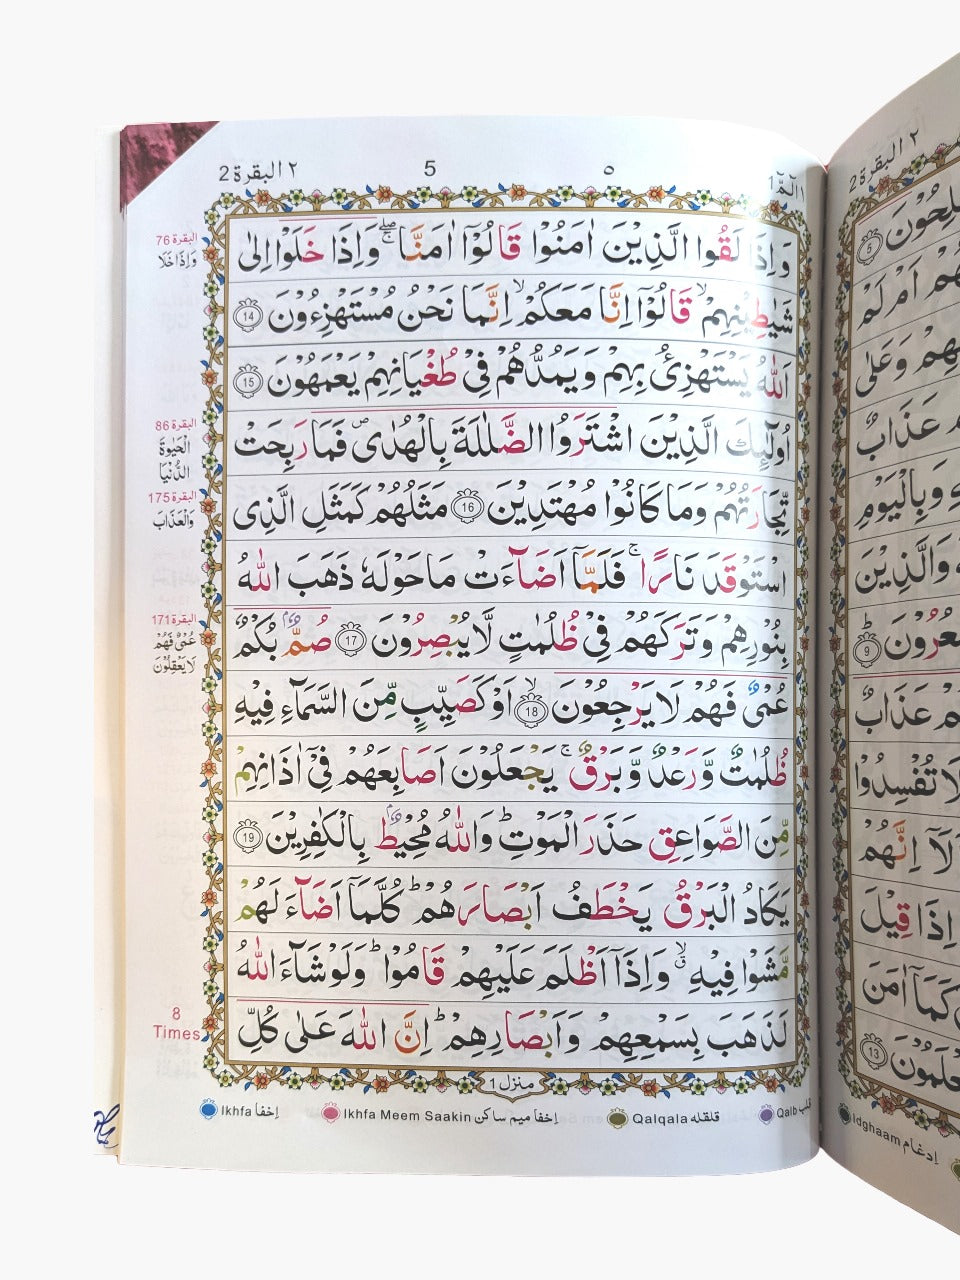 2 البقرة ٢
5
٥
الٓمّٓ ١
وَاِذَا لَقُوا الَّذِيْنَ اٰمَنُوْا قَالُوْٓا اٰمَنَّا ۖۚ وَاِذَا خَلَوْا اِلٰى
شَيٰطِيْنِهِمْ ۙ قَالُوْٓا اِنَّا مَعَكُمْ ۙ اِنَّمَا نَحْنُ مُسْتَهْزِءُوْنَ 14
اَللّٰهُ يَسْتَهْزِئُ بِهِمْ وَيَمُدُّهُمْ فِيْ طُغْيَانِهِمْ يَعْمَهُوْنَ 15
اُولٰٓئِكَ الَّذِيْنَ اشْتَرَوُا الضَّلٰلَةَ بِالْهُدٰى ۪ فَمَا رَبِحَتْ
تِّجَارَتُهُمْ وَمَا كَانُوْا مُهْتَدِيْنَ 16 مَثَلُهُمْ كَمَثَلِ الَّذِى
اسْتَوْقَدَ نَارًا ۚ فَلَمَّآ اَضَآءَتْ مَا حَوْلَهٗ ذَهَبَ اللّٰهُ
بِنُوْرِهِمْ وَتَرَكَهُمْ فِيْ ظُلُمٰتٍ لَّا يُبْصِرُوْنَ 17 صُمٌّۢ بُكْمٌ
عُمْيٌ فَهُمْ لَا يَرْجِعُوْنَ ۙ 18 اَوْ كَصَيِّبٍ مِّنَ السَّمَآءِ فِيْهِ
ظُلُمٰتٌ وَّرَعْدٌ وَّبَرْقٌ ۚ يَجْعَلُوْنَ اَصَابِعَهُمْ فِيْٓ اٰذَانِهِمْ
مِّنَ الصَّوَاعِقِ حَذَرَ الْمَوْتِ ؕ وَاللّٰهُ مُحِيْطٌۢ بِالْكٰفِرِيْنَ 19
يَكَادُ الْبَرْقُ يَخْطَفُ اَبْصَارَهُمْ ؕ كُلَّمَآ اَضَآءَ لَهُمْ
مَّشَوْا فِيْهِ ۙ وَاِذَآ اَظْلَمَ عَلَيْهِمْ قَامُوْا ؕ وَلَوْ شَآءَ اللّٰهُ
لَذَهَبَ بِسَمْعِهِمْ وَاَبْصَارِهِمْ ؕ اِنَّ اللّٰهَ عَلٰى كُلِّ
منزل 1
البقرة 76
وَاِذَا خَلَا
البقرة 86
الْحَيٰوةَ
الدُّنْيَا
البقرة 175
وَالْعَذَابَ
البقرة 171
عُمْيٌ فَهُمْ
لَا يَعْقِلُوْنَ
8
Times
Ikhfa إخفا
Ikhfa Meem Saakin إخفا ميم ساكن
Qalqala قلقله
Qalb قلب
2 البقرة ٢
5
اَمْ لَمْ
وَعَلٰى
عَذَابٌ
وَبِالْيَوْمِ
وَالَّذِيْنَ
9
عَذَابٌ
لَا تُفْسِدُوْا
اِنَّهُمْ
اِذَا قِيْلَ
كَمَآ اٰمَنَ
13
Idghaam إدغام